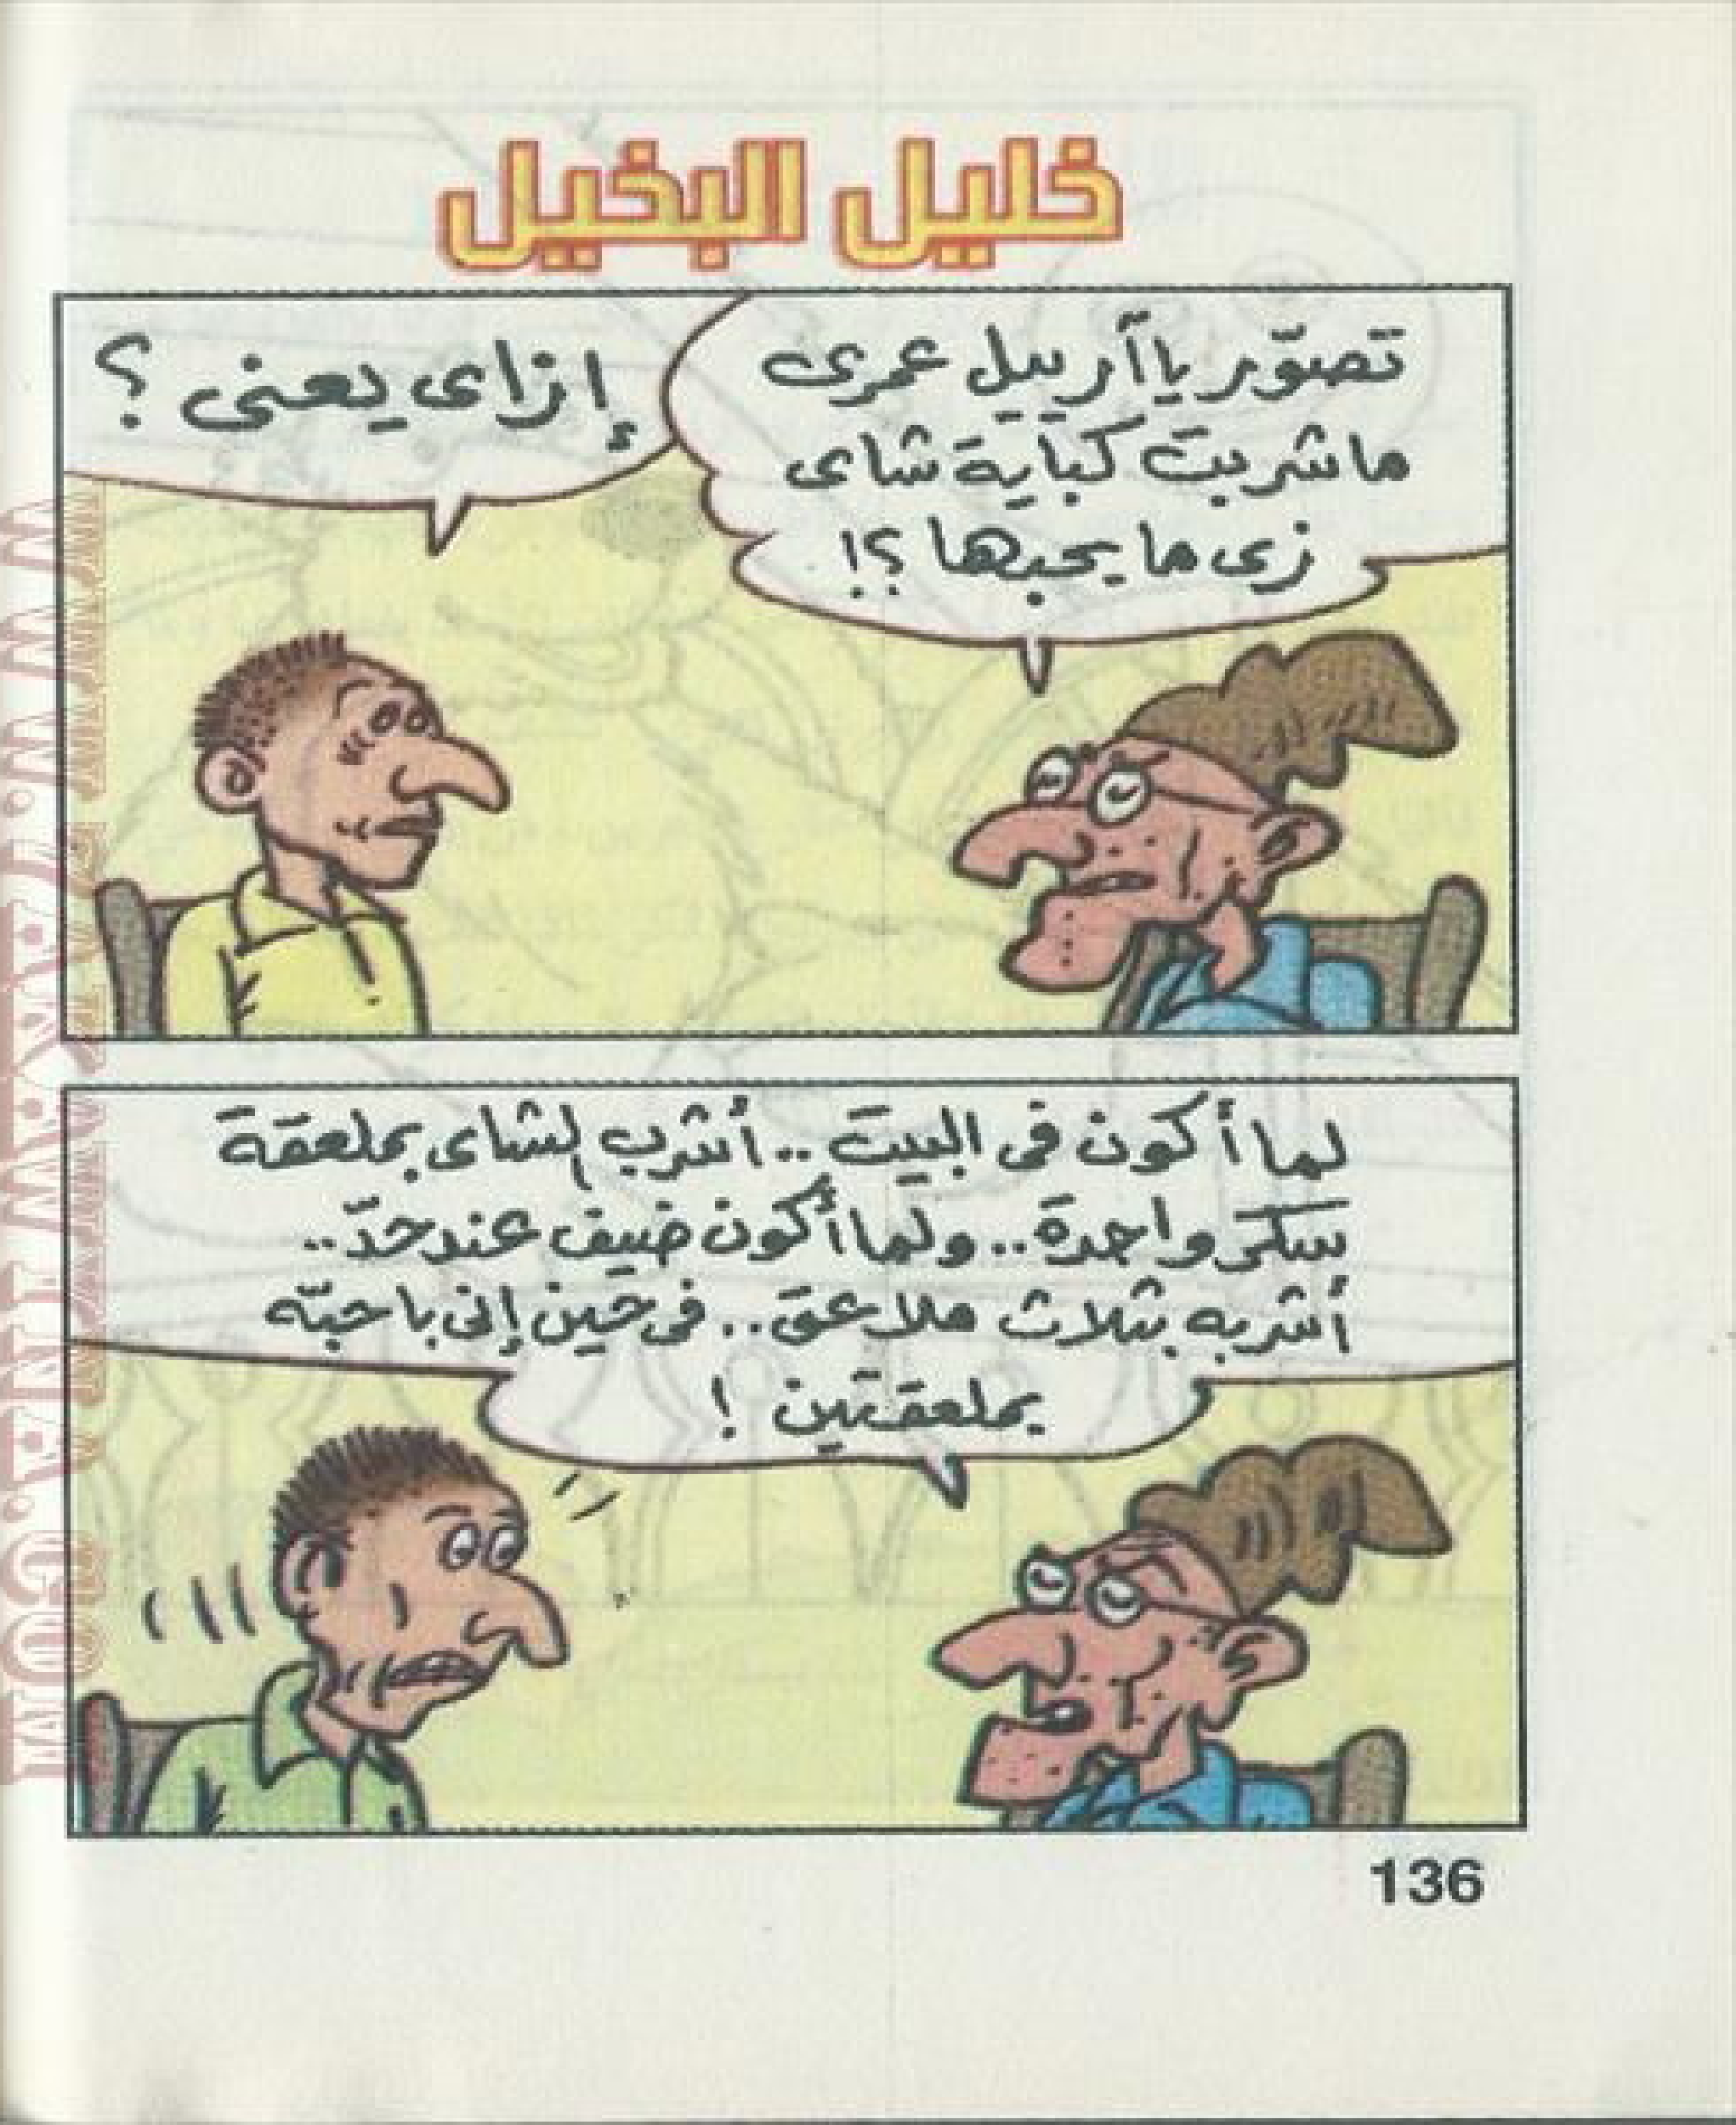 خليل البخيل
تصوّر يا آربيل عمرى
ما شربت كباية شاى
زى ما يحبها ؟!
إزاى يعنى ؟
لما أكون فى البيت .. أشرب الشاى بملعقة
سكر واحدة .. ولما أكون ضيف عند حدّ ..
أشربه بثلاث ملاعق .. فى حين إنى باحبّه
بملعقتين !
136